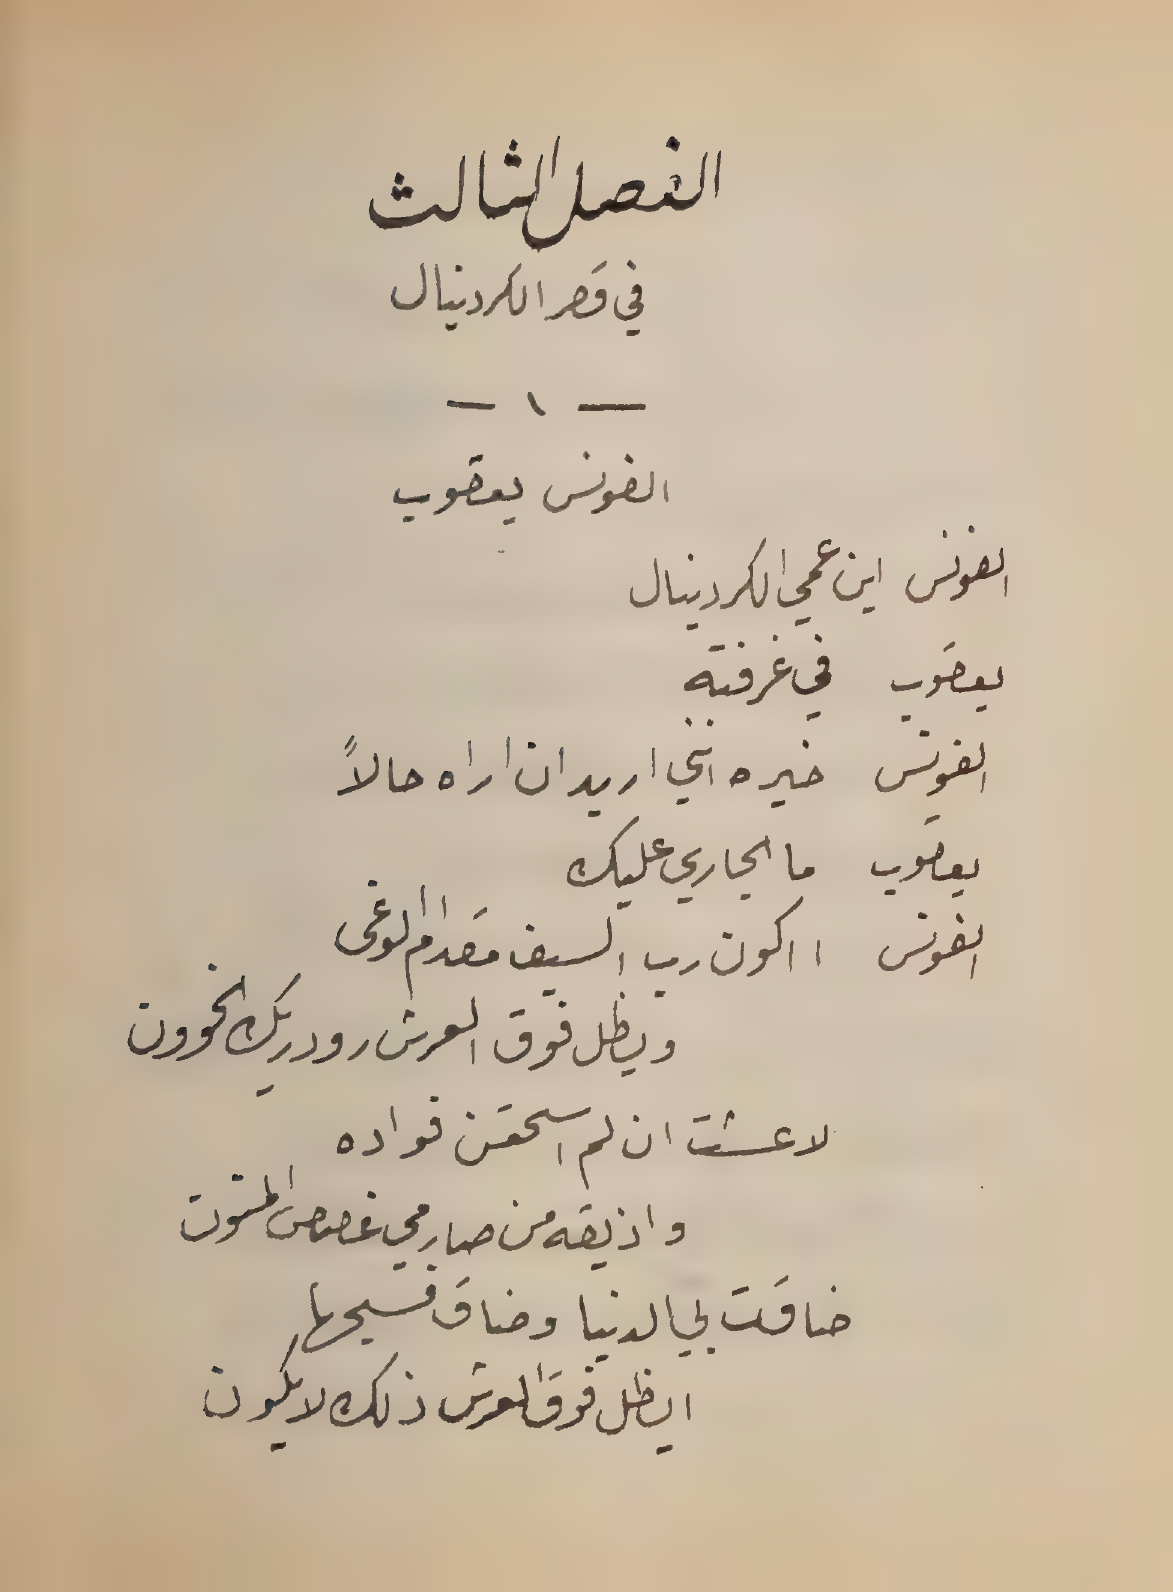 الفصل الثالث
في قصر الكردينال
— ١ —
الفونس يعقوب
الفونس اين عمي الكردينال
يعقوب في غرفته
الفونس خبره انني اريد ان اراه حالاً
يعقوب ما الجاري عليك
الفونس ااكون رب السيف مقدام الوغى
ويظل فوق العرش رودريك الخوون
لا عشت ان لم اسحقن فواده
واذيقه من صارمي غصص المنون
ضاقت بي الدنيا وضاق فسيحها
ايظل فوق العرش ذلك لا يكون